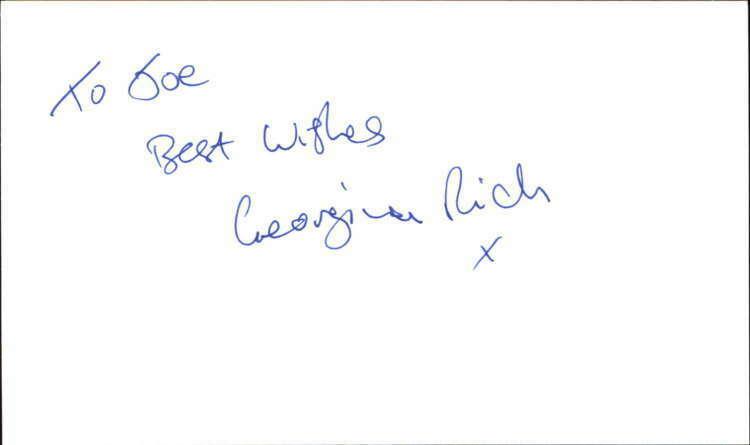 To Joe
Best Wishes
Georgina Rich
x